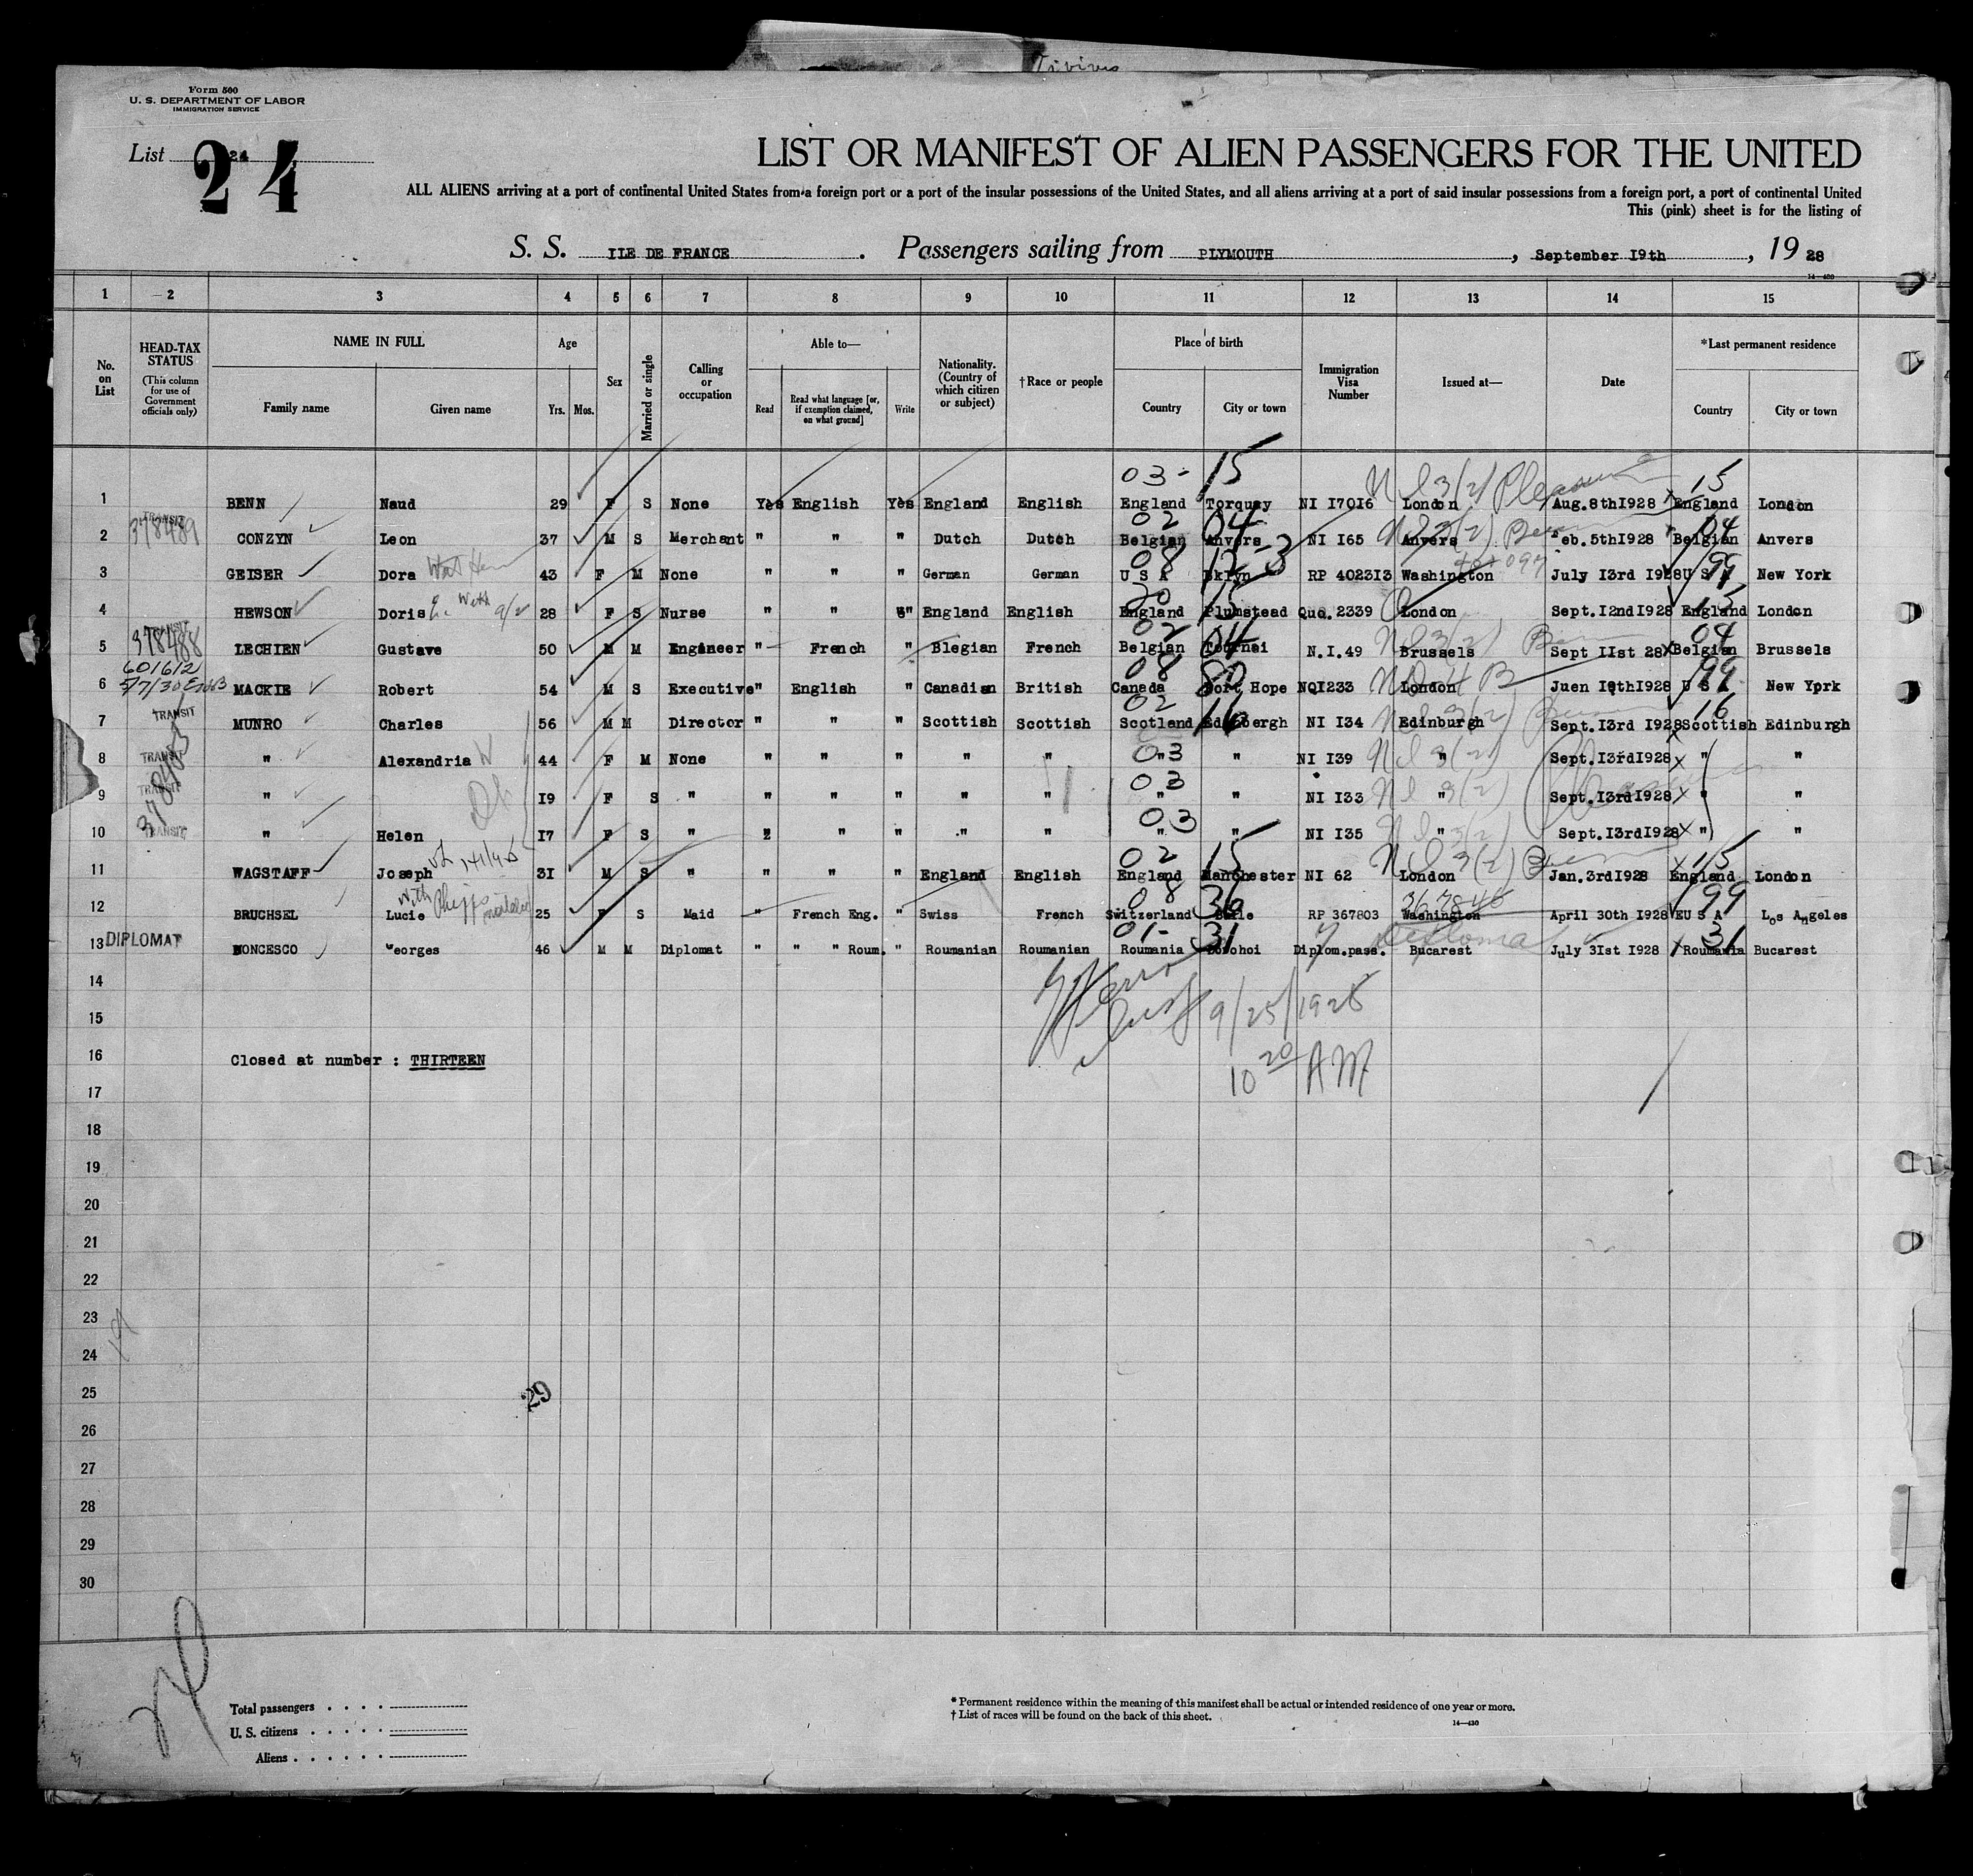 Form 500
U. S. DEPARTMENT OF LABOR
IMMIGRATION SERVICE
List 24
24
LIST OR MANIFEST OF ALIEN PASSENGERS FOR THE UNITED
ALL ALIENS arriving at a port of continental United States from a foreign port or a port of the insular possessions of the United States, and all aliens arriving at a port of said insular possessions from a foreign port, a port of continental United
This (pink) sheet is for the listing of
S. S. ILE DE FRANCE . Passengers sailing from PLYMOUTH , September I9th , 19 28
14-430
1 2 3 4 5 6 7 8 9 10 11 12 13 14 15
No. on List
HEAD-TAX STATUS (This column for use of Government officials only)
NAME IN FULL
Family name Given name
Age Yrs. Mos.
Sex
Married or single
Calling or occupation
Able to—
Read
Read what language [or, if exemption claimed, on what ground]
Write
Nationality. (Country of which citizen or subject)
†Race or people
Place of birth
Country City or town
Immigration Visa Number
Issued at—
Date
*Last permanent residence
Country City or town
03- 15 Nl 3(2) Pleasure 15
1 BENN Naud 29 F S None Yes English Yes England English England Torquay NI I70I6 London Aug.8thI928 x England London
TRANSIT 378489 02 04 Nl 3(2) 04
2 CONZYN Leon 37 M S Merchant " " " Dutch Dutch Belgian Anvers NI I65 Anvers Feb.5thI928 Belgian Anvers
08 12-3 99
3 GEISER Dora 43 F M None " " " German German U S A Bklyn RP 4023I3 Washington July I3rd I928 U S A New York
20 15 15
4 HEWSON Doris 28 F S Nurse " " " England English England Plumstead Quo.2339 London Sept.I2ndI928 England London
TRANSIT 378488 02 04 Nl 3(2) 04
5 LECHIEN Gustave 50 M M Engineer " French " Blegian French Belgian Tournai N.I.49 Brussels Sept IIst 28 x Belgian Brussels
601612 08 80 99
6 MACKIE Robert 54 M S Executive " English " Canadian British Canada Port Hope NQI233 London Juen I9thI928 U S A New Yprk
TRANSIT 02 16 Nl 3(2) 16
7 MUNRO Charles 56 M M Director " " " Scottish Scottish Scotland Edinbergh NI I34 Edinburgh Sept.I3rd I928 Scottish Edinburgh
TRANSIT 03 Nl 3(2)
8 " Alexandria 44 F M None " " " " " " " NI I39 " Sept.I3rdI928 x " "
TRANSIT 03 Nl 3(2)
9 " I9 F S " " " " " " " " NI I33 " Sept.I3rdI928 x " "
TRANSIT 03 Nl 3(2)
10 " Helen I7 F S " " " " " " " " NI I35 " Sept.I3rdI928 x " "
02 15 Nl 3(2) x 15
11 WAGSTAFF Joseph 3I M S " " " " England English England Manchester NI 62 London Jan.3rdI928 England London
08 36 367846 99
12 BRUCHSEL Lucie 25 F S Maid " French Eng. " Swiss French Switzerland Bâle RP 367803 Washington April 30th I928 EU S A Los Angeles
DIPLOMAT 01- 31 Diploma 31
13 BONCESCO Georges 46 M M Diplomat " " " Roum. " Roumanian Roumanian Roumania Dorohoi Diplom.pass. Bucarest July 3Ist I928 Roumania Bucarest
14
15
9/25/1928
16 Closed at number : THIRTEEN
10 20 AM
17
18
19
20
21
22
23
24
25
29
26
27
28
29
30
Total passengers
U. S. citizens
Aliens
* Permanent residence within the meaning of this manifest shall be actual or intended residence of one year or more.
† List of races will be found on the back of this sheet.
14-430